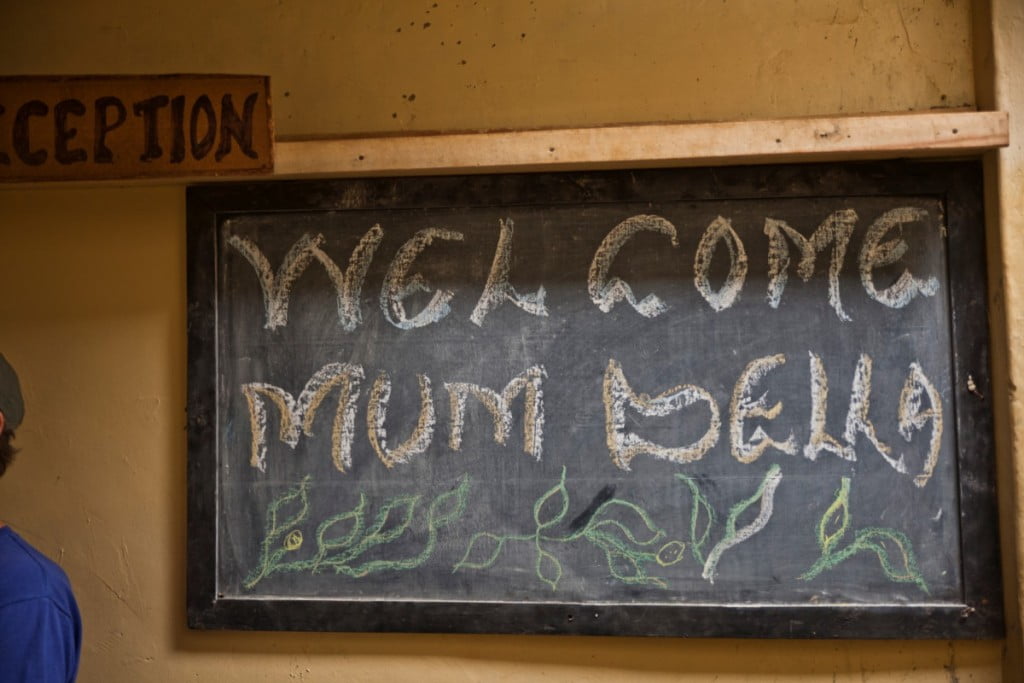 ECEPTION
WELCOME
MUM BELLA